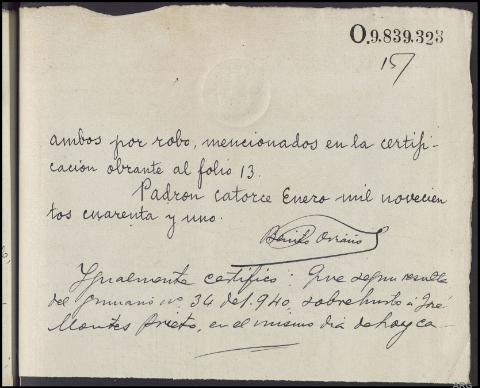 O.9.839.323
15
ambos por robo, mencionados en la certifi-
cación obrante al folio 13.
Padron catorce Enero mil novecien
tos cuarenta y uno.
Igualmente certifico: Que segun resulta
del sumario nº 34 de 1.940, sobre hurto á José
Montes Prieto, en el mismo dia de hoy ca-